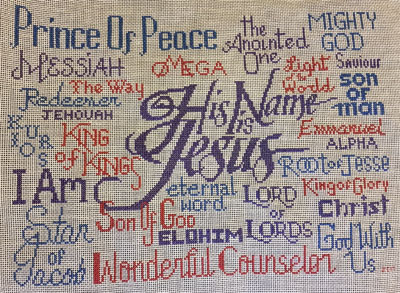 Prince Of Peace
the Anointed One
MIGHTY GOD
MESSIAH
OMEGA
Light of the World
Saviour
The Way
Redeemer
JEHOVAH
His Name Is Jesus
son of man
Emmanuel
ALPHA
KURIOS
KING of KINGS
Root of Jesse
I Am
eternal word
LORD of LORDS
King of Glory
Christ
Star of Jacob
Son Of God
ELOHIM
God With Us
Wonderful Counselor